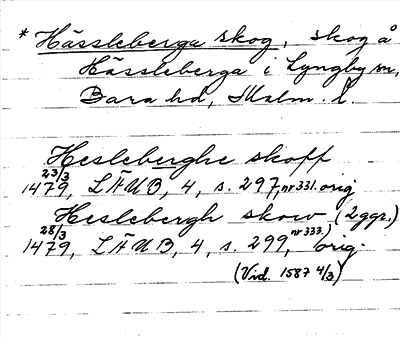 * Hässleberga skog, skog å
Hässleberga i Lyngby sn,
Bara hd, Malm. l.
Hesleberghe skoff
1479 23/3, LÄUB, 4, s. 297, nr 331. orig
Heslebergh skow (2 ggr.)
1479 28/3, LÄUB, 4, s. 299, nr 333. orig.
(Vid. 1587 4/3)